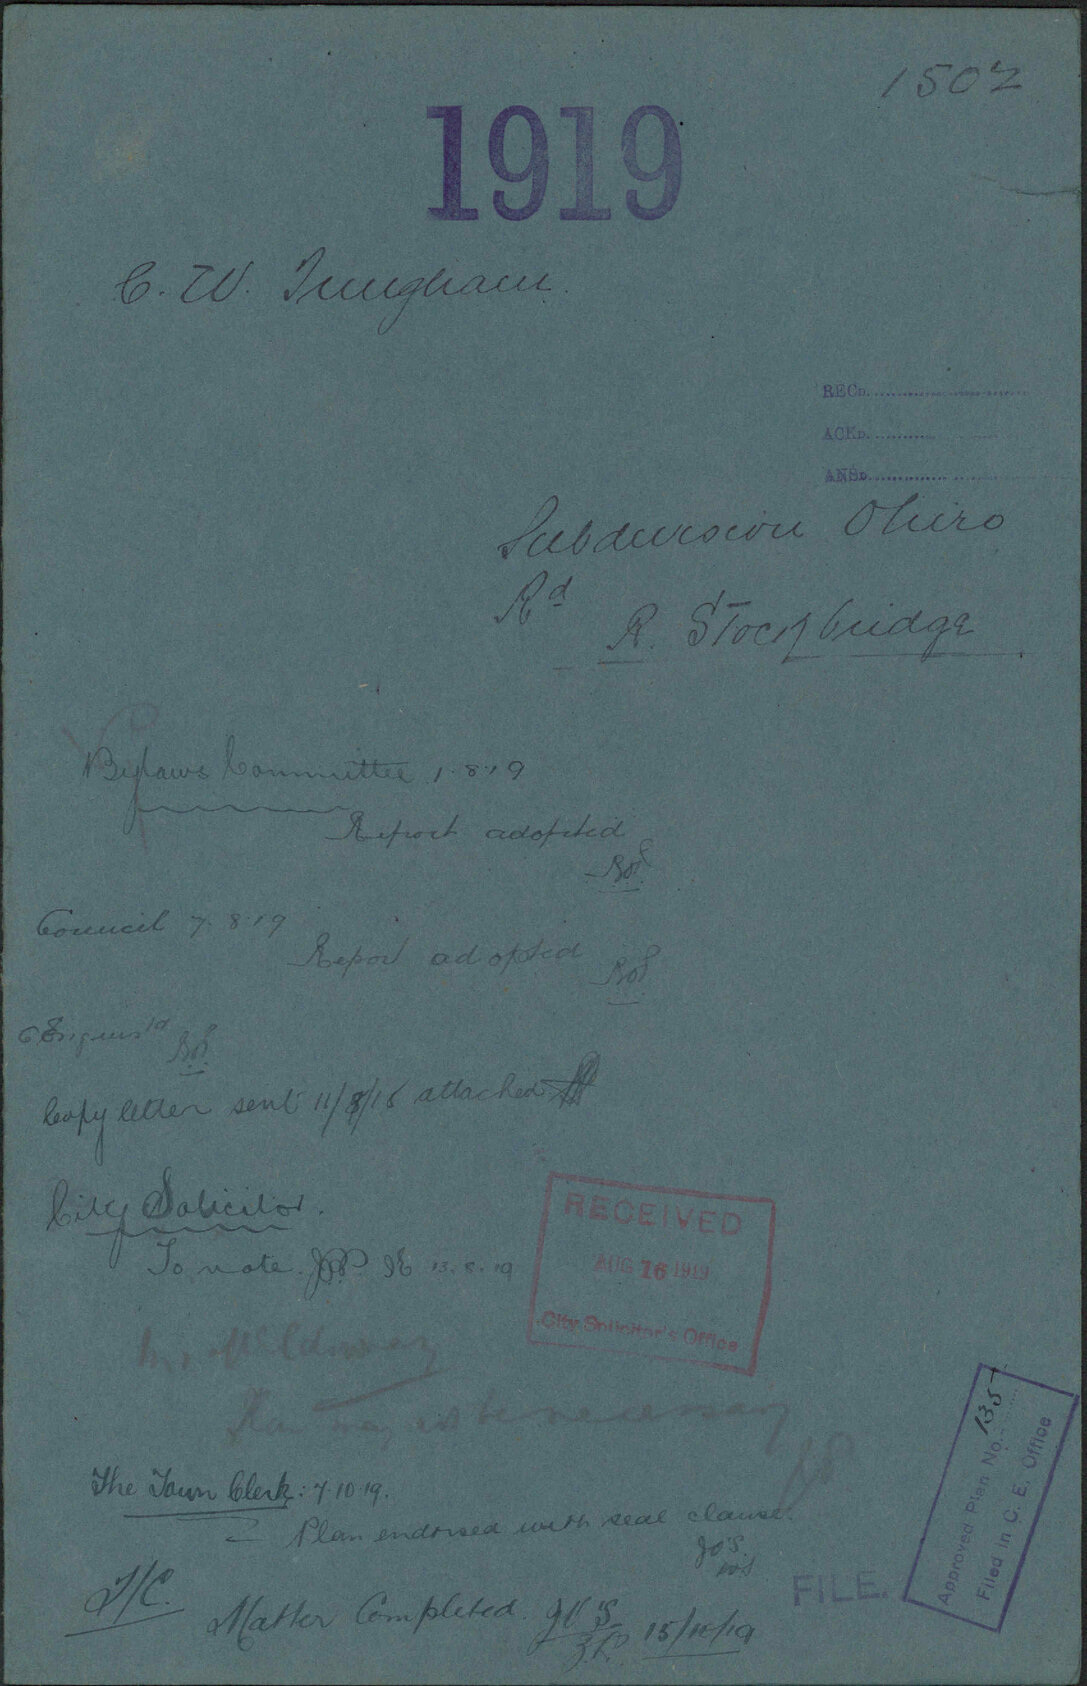 1502
1919
C. W.
RECD.
ACKD.
ANSD.
Subdivision Ohiro
Rd
R. Stockbridge
Bylaws Committee 1.8.19
Report adopted
Council 7.8.19
Report adopted
Copy letter sent 11/8/15 attached
City Solicitor.
To note. 13.8.19
RECEIVED
AUG 16 1919
City Solicitor's Office
necessary
The Town Clerk: 7.10.19.
Plan endorsed with seal clause.
T/C.
Matter Completed. 15/10/19
FILE.
Approved Plan No. 1357
Filed in C. E. Office